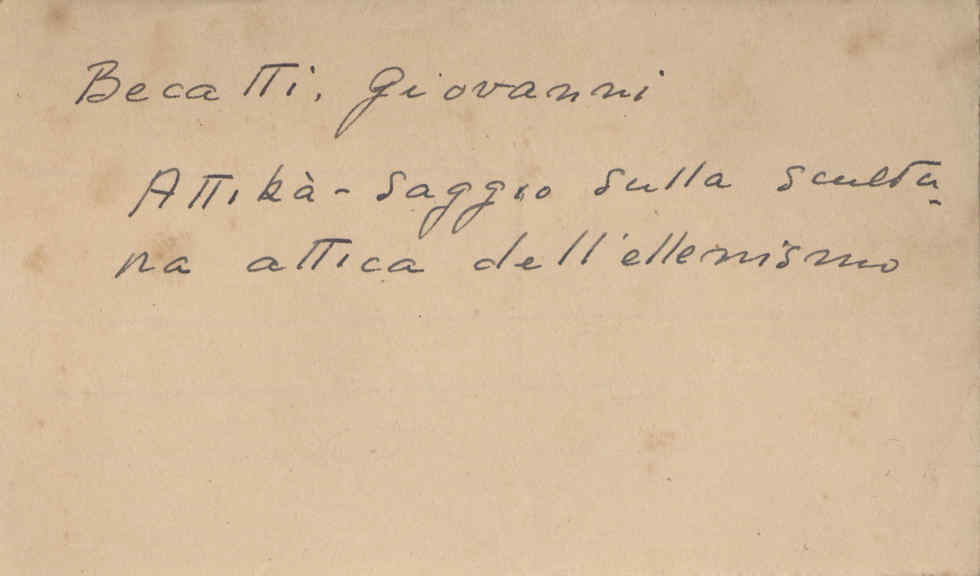 Becatti, Giovanni
Attikà - Saggio sulla scultu-
ra attica dell'ellenismo